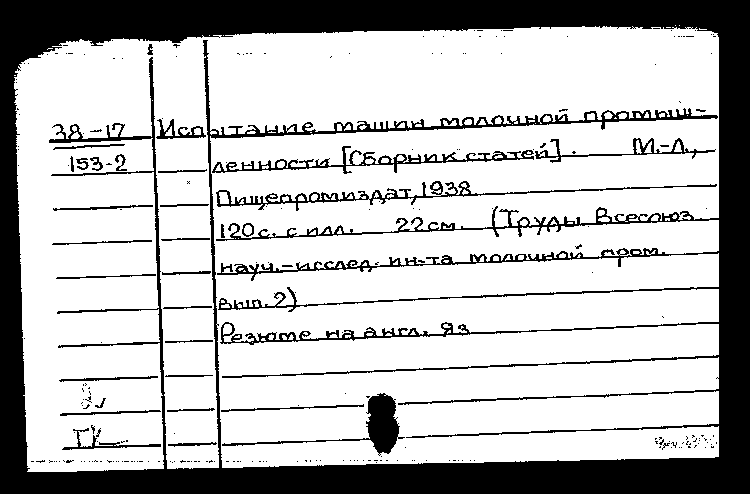 38-17 Испытание машин молочной промыш-
153-2 ленности [Сборник статей]. М.-Л.,
Пищепромиздат, 1938
120 с. с илл. 22 см. (Труды Всесоюз
науч.-исслед. ин-та молочной пром.
вып. 2)
Резюме на англ. яз
ГК